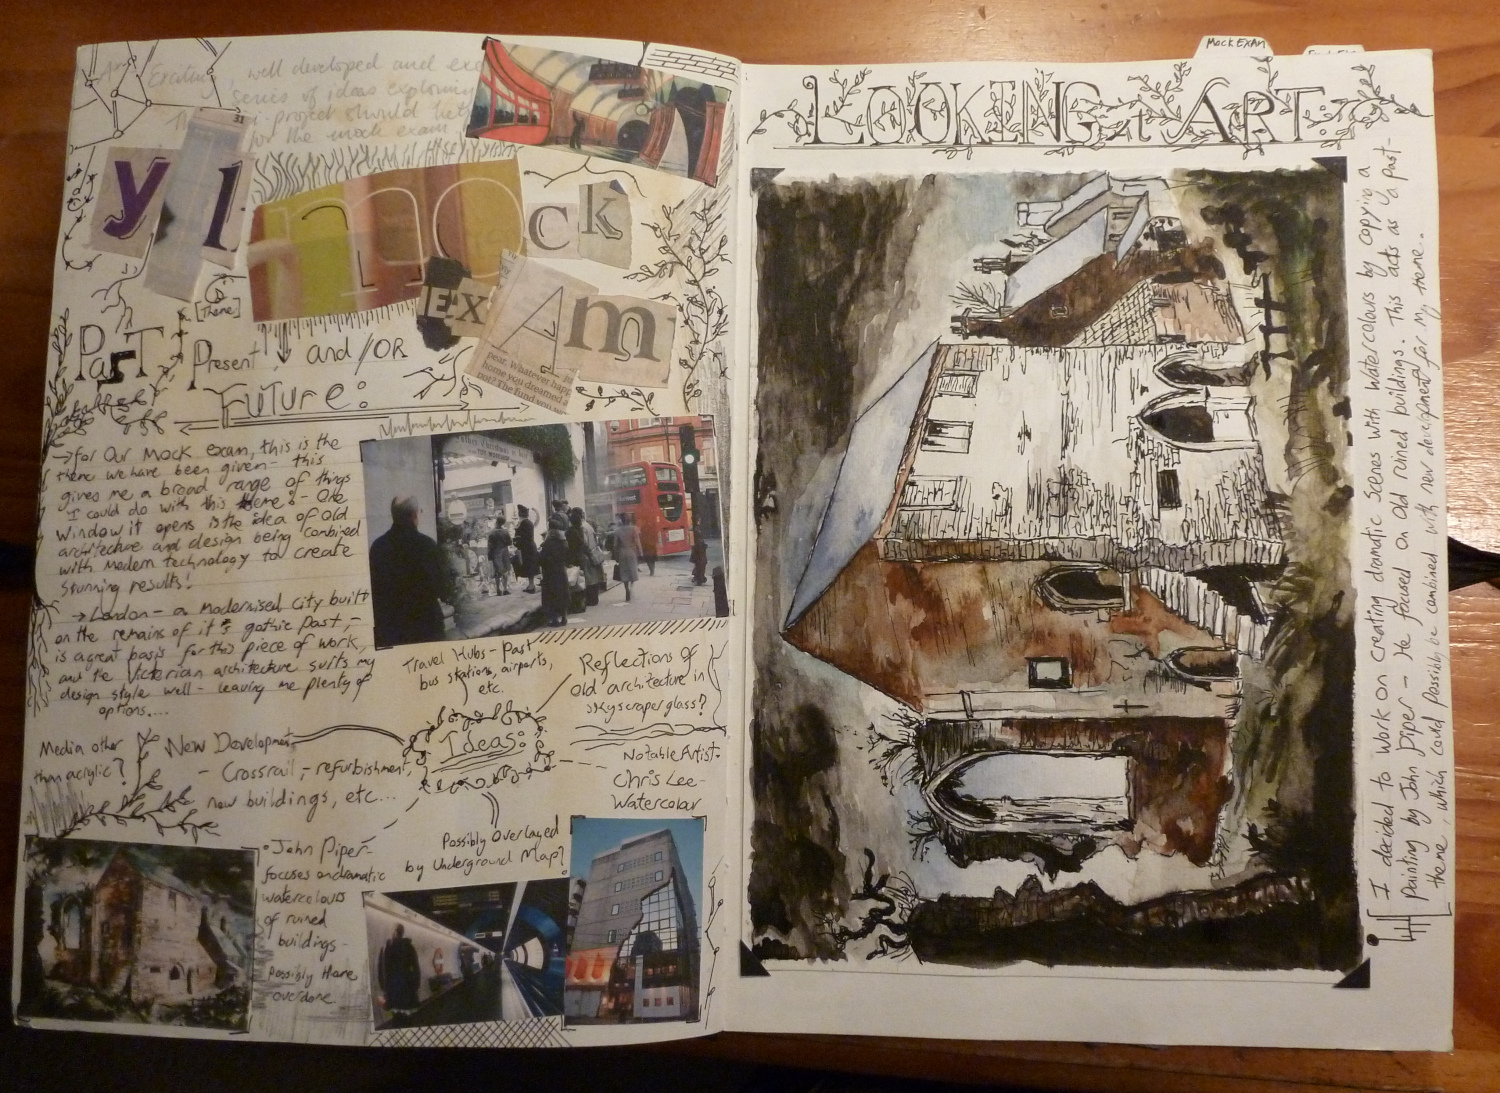 Exciting, well developed and
series of ideas exploring
project should
for the mock exam
y1 mock
ExAm
[Theme]
PasT Present and/OR
Future:
→ For Our Mock exam, this is the
theme we have been given - this
gives me a broad range of things
I could do with this theme - One
window it opens is the idea of Old
architecture and design being combined
with Modern technology to create
Stunning results!
→ London - a Modernised City built
on the remains of it's gothic past, -
is a great basis for this piece of work,
and the Victorian architecture suits my
design style well - leaving me plenty of
options....
Travel Hubs - Past
bus stations, airports,
etc.
Reflections of
Old architecture in
skyscraper glass?
Ideas:
Media other
than acrylic?
New Development
- Crossrail, - refurbishment,
new buildings, etc...
Notable Artist -
Chris Lee -
Watercolour
Possibly Overlayed
by Underground Map?
• John Piper -
focuses on dramatic
watercolours
of ruined
buildings -
possibly theme
overdone
peat. Whatever
home you dreamed
pot? The fund you
Mock EXAM
LOOKING at ART:
I decided to work on creating dramatic scenes with watercolours by copying a
painting by John Piper - He focused on old ruined buildings. This acts as a past-
theme, which could possibly be combined with new development for my theme..